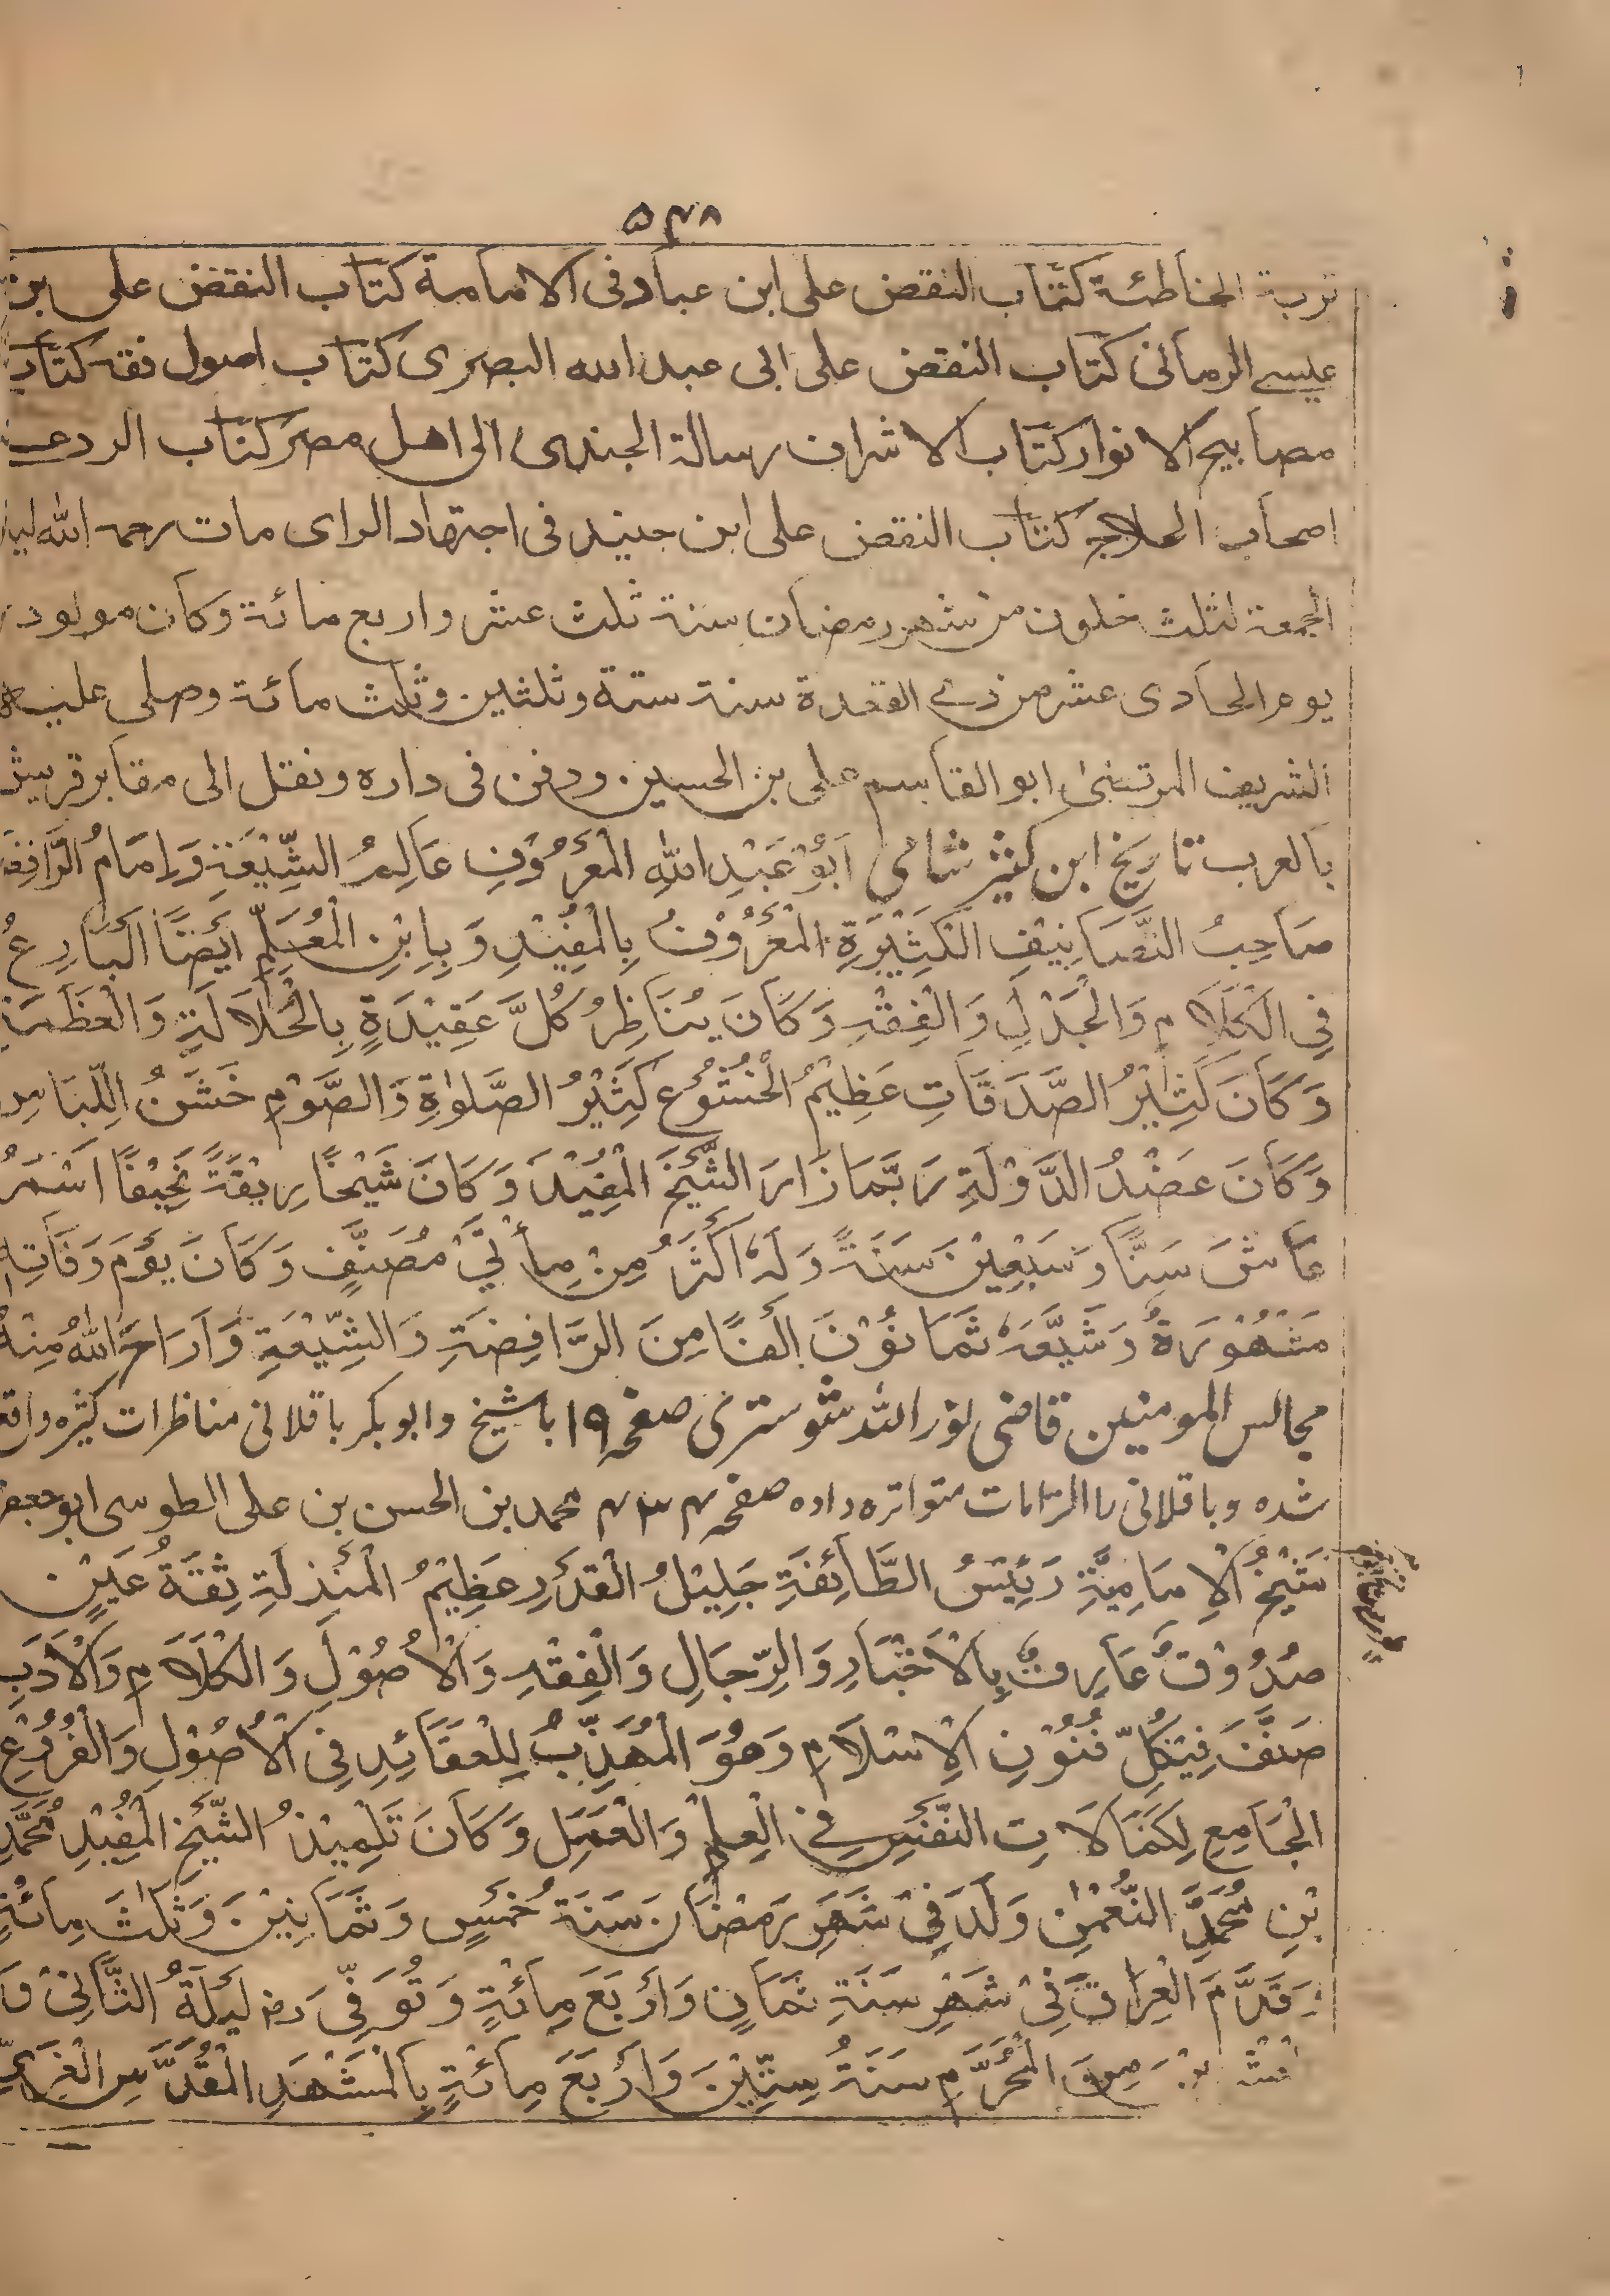 ۵۳۸
تربة الخاطئة كتاب النقض على ابن عباد فى الامامة كتاب النقض على بن
عليسے الرمانى كتاب النقض على ابى عبد الله البصرى كتاب اصول فقه كتاب
مصابيح الانوار كتاب الاشراف رسالة الجندى الى اهل مصر كتاب الرد على
اصحاب الحلاج كتاب النقض على ابن جنيد فى اجتهاد الراى مات رحمه الله ليلة
الجمعة لثلث خلون من شهر رمضان سنة ثلث عشر واربع مائة وكان مولود
يوم الحادى عشر من ذے القعدة سنة ستة وثلثين وثلث مائة وصلى عليه
الشريف المرتضىٰ ابو القاسم على بن الحسين ودفن فى داره ونقل الى مقابر قريش
بالعرب تاريخ ابن كثير شامى اَبُوْ عَبْدِ اللهِ الْمَعْرُوْفِ عَالِمُ الشِّيْعَةِ وَاِمَامُ الرَّافِضَة
صَاحِبُ التَّصَانِيْفِ الْكَثِيْرَةِ الْمَعْرُوْفُ بِالْمُفِيْدِ وَبِابْنِ الْمُعَلِّمِ اَيْضًا اَلْبَارِعُ
فِي الْكَلَامِ وَالْجَدْلِ وَالْفِقْهِ وَكَانَ يُنَاظِرُ كُلَّ عَقِيْدَةٍ بِالْجَلَالَةِ وَالْعَظَمَة
وَكَانَ كَثِيْرُ الصَّدَقَاتِ عَظِيْمُ الْخُشُوْعِ كَثِيْرُ الصَّلٰوةِ وَالصَّوْمِ خَشَنُ اللِّبَاسِ
وَكَانَ عَضْدُ الدَّوْلَةِ رَبَّمَا زَارَ الشَّيْخَ الْمُفِيْدَ وَكَانَ شَيْخًا رِيْقَةً نَحِيْفًا اَسْمَرُ
عَاشَ سَتًّا وَسَبْعِيْنَ سَنَةً وَلَهٗ اَكْثَرُ مِنْ مِأتَيْ مُصَنَّفٍ وَكَانَ يَوْمَ وَفَاتِهٖ
مَشْهُوْرَةٌ وَشَيَّعَهٗ ثَمَانُوْنَ اَلْفًا مِنَ الرَّافِضَةِ وَالشِّيْعَةِ وَاَرَاحَ اللهُ مِنْهُ
مجالس المومنين قاضى نور الله شوسترى صفحہ ١٩١ با شيخ وابو بكر باقلانى مناظرات كثيره واقع
شده وباقلانى را الزامات متواتره داده صفحہ ۴۳۴ محمد بن الحسن بن على الطوسى ابو جعفر
شَيْخُ الْاِمَامِيَّةِ رَئِيْسُ الطَّائِفَةِ جَلِيْلُ الْقَدْرِ عَظِيْمُ الْمَنْزِلَةِ ثِقَةٌ عَيْنٌ
صُدُوْقٌ عَارِفٌ بِالْاَخْبَارِ وَالرِّجَالِ وَالْفِقْهِ وَالْاُصُوْلِ وَالْكَلَامِ وَالْاَدَبِ
صَنَّفَ فِيْ كُلِّ فُنُوْنِ الْاِسْلَامِ وَهُوَ الْمُهَذِّبُ لِلْعَقَائِدِ فِى الْاُصُوْلِ وَالْفُرُوْعِ
الْجَامِعِ لِكَمَالَاتِ النَّفْسِ فِى الْعِلْمِ وَالْعَمَلِ وَكَانَ تَلْمِيْذُ الشَّيْخِ الْمُفِيْدِ مُحَمَّدِ
بْنِ مُحَمَّدِ النُّعْمٰنِ وَلَدَ فِىْ شَهْرِ رَمَضَانَ سَنَةَ خَمْسٍ وَثَمَانِيْنَ وَثَلٰثَ مِائَةٍ
وَقَدَّمَ الْعِرَاقَ فِىْ شَهْرِ سَنَةِ ثَمَانٍ وَاَرْبَعَ مِائَةٍ وَتُوَفِّىَ رض لَيْلَةُ الثَّانِىْ وَ
الْعِشْرِيْنَ مِنَ الْمُحَرَّمِ سَنَةُ سِتِّيْنَ وَاَرْبَعَ مِائَةٍ بِالْمَشْهَدِ الْمُقَدَّسِ الْغَرَىِّ